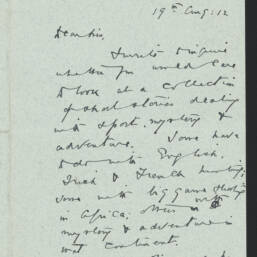 19th Aug: 12
Dear Sir,
I write to enquire
whether you would care
to look at a collection
of short stories dealing
with sport, mystery &
adventure. Some have
to do with English,
Irish & French hunting,
some with big game shooting
in Africa, others with
mystery & adventure in
that continent.